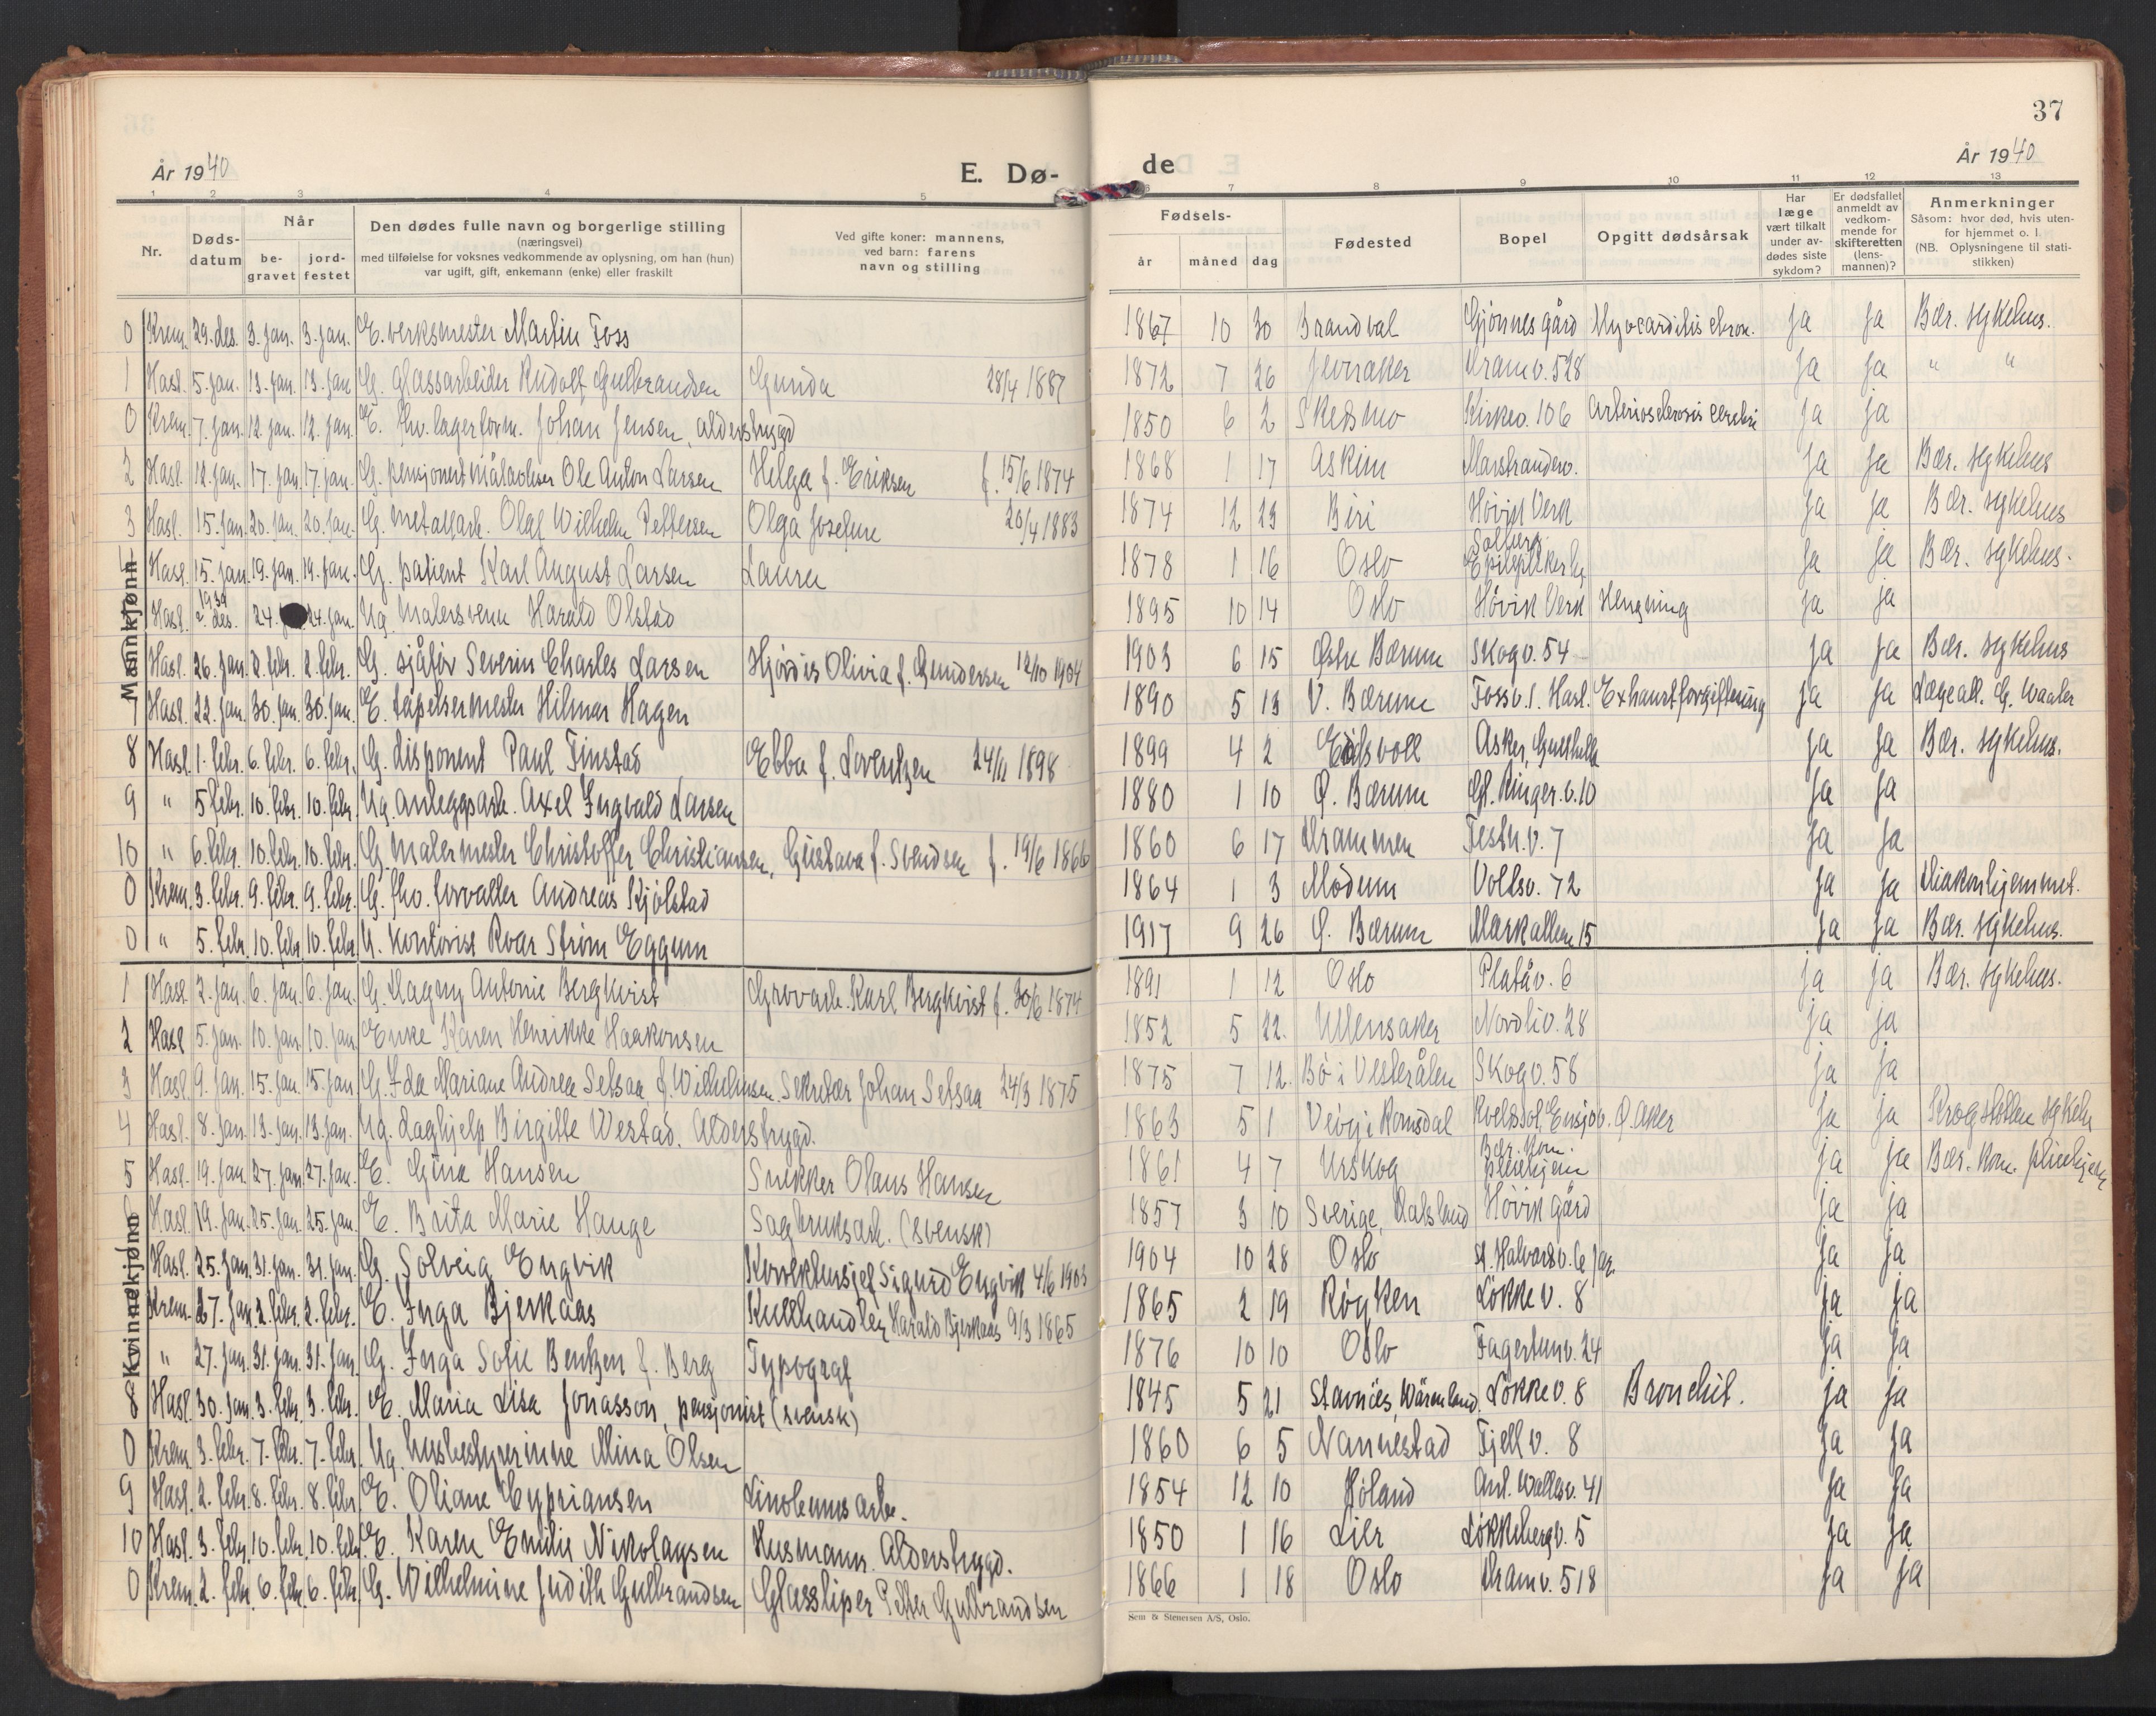 37
År 1940
E. Dø-
de
År 1940
1 2 3 4 5
6 7 8 9 10 11 12 13
Nr.
Døds-
datum
Når
be-
gravet
jord-
festet
Den dødes fulle navn og borgerlige stilling
(næringsvei)
med tilføielse for voksnes vedkommende av oplysning, om han (hun)
var ugift, gift, enkemann (enke) eller fraskilt
Ved gifte koner: mannens,
ved barn: farens
navn og stilling
Fødsels-
år måned dag
Fødested
Bopel
Opgitt dødsårsak
Har
læge
vært tilkalt
under av-
dødes siste
sykdom?
Er dødsfallet
anmeldt av
vedkom-
mende for
skifteretten
(lens-
mannen)?
Anmerkninger
Såsom: hvor død, hvis uten-
for hjemmet o. l.
(NB. Oplysningene til stati-
stikken)
Mannkjønn
0 Krem. 29. des. 3. jan. 3. jan. E. verksmester Martin Foss 1867 10 30 Brandval Gjønnes gård Myocarditis chron. ja ja Bær. sykehus.
1 Hasl. 5. jan. 13. jan. 13. jan G. Glassarbeider Rudolf Gulbrandsen Gunda 28/4 1887 1872 7 26 Jevnaker Dramv. 528 ja ja " "
0 Krem. 7. jan. 12. jan. 12. jan. E. fhv. lagerform. Johan Jensen, alderstrygd 1850 6 2 Skedsmo Kirkev. 106 Arteriosclerosis cerebri ja ja
2 Hasl. 12. jan. 17. jan. 17. jan. G. pensjonert målavleser Ole Anton Larsen Helga f. Eriksen f. 15/6 1874 1868 1 17 Askim Marstranderv. ja ja Bær. sykehus
3 Hasl. 15. jan. 20. jan. 20. jan. G. metallarb. Olaf Wilhelm Pettersen Olga Josefine 20/4 1883 1874 12 23 Biri Høvik Verk ja ja Bær. sykehus
Hasl. 15. jan. 19. jan. 19. jan. G. patient Karl August Larsen Laura 1878 1 16 Oslo Solberg Epileptikerhj. ja ja Bær. sykehus.
Hasl. 1939 2. des. 24. 24. jan. Ug. Malersvenn Harald Olstad 1895 10 14 Oslo Høvik Verk Hengning ja ja
Hasl. 26. jan. 2. febr. 2. febr. G. sjåfør Severin Charles Larsen Hjørdis Olivia f. Gundersen 12/10 1904 1903 6 15 Østre Bærum Skogv. 54 ja ja Bær. sykehus
7 Hasl. 22. jan. 30. jan. 30. jan. E. tapetsermester Hilmar Hagen 1890 5 13 V. Bærum Fossv. 1. Hasl. Exhaustforgiftning ja ja Lægeatt. G. Waaler
8 Hasl. 1. febr. 6. febr. 6. febr. G. disponent Paul Finstad Ebba f. Lorentzen 24/11 1898 1899 4 2 Eidsvoll Asker, Gullhella ja ja Bær. sykehus.
9 " 5 febr. 10. febr. 10. febr. Ug. anleggsarb. Axel Ingvald Larsen 1880 1 10 Ø. Bærum Gl. Ringer.v. 10 ja ja
10 " 6. febr. 10. febr. 10. febr. G. Malermester Christoffer Christiansen, Gustava f. Svendsen f. 19/6 1866 1860 6 17 Drammen Festn.v. 7 ja ja
0 Krem. 3. febr. 9. febr. 9. febr. G. fhv. forvalter Andreas Kjølstad 1864 1 3 Modum Vollsv. 72 ja ja Diakonhjemmet.
0 " 5. febr. 10. febr. 10. febr. U. Kontorist Roar Strøm Eggum 1917 9 26 Ø. Bærum Markalleen 15 ja ja Bær. sykehus.
Kvinnekjønn
1 Hasl 2. jan. 6. jan. 6. jan. G. Dagny Antonie Bergkvist Grovarb. Karl Bergkvist f. 30/6 1874 1891 1 12 Oslo Platåv. 6 ja ja Bær. sykehus.
2 Hasl 5. jan. 10. jan. 10. jan. Enke Karen Henrikke Haakonsen 1852 5 22. Ullensaker Nordliv. 28 ja ja
3 Hasl. 9. jan. 15. jan. 15. jan G. Ida Mariane Andrea Setsaa, f. Wilhelmsen. Sekretær Johan Setsaa 24/3 1875 1875 7 12. Bø i Vesterålen Skogv. 58 ja ja
4 Hasl. 8. jan. 13. jan. 13. jan. Ug. Daghjelp Birgitte Westad. Alderstrygd. 1863 5 1 Veøy i Romsdal Ensjøv. Ø. Aker ja ja Krogstøtten sykeh
5 Hasl. 19. jan. 27. jan. 27. jan. E. Gina Hansen Snekker Olaus Hansen 1861 4 7 Urskog Bær. Kom. pleiehjem ja ja Bær. Kom. pleiehjem
6 Hasl. 19. jan. 25. jan. 25. jan. E. Brita Marie Hauge Sagbruksarb. (svensk) 1857 3 10 Sverige, Dalsland Høvik gård ja ja
Hasl. 25. jan. 31. jan. 31. jan. G. Solveig Engvik Sigurd Engvik 4/6 1903 1904 10 28 Oslo St. Halvardsv. 6 Jar. ja ja
Krem. 27. jan. 2. febr. 2. febr. E. Inga Bjerkaas Kullhandler Harald Bjerkaas 9/3 1865 1865 2 19 Røyken Løkkev. 8 ja ja
" 27. jan. 31. jan. 31. jan. G. Inga Sofie Bentzen f. Berg Typograf 1876 10 10 Oslo Fagertunv. 24 ja ja
8 Hasl. 30. jan. 3. febr. 3. febr. E. Maria Lisa Jonasson, pensjonist (svensk) 1845 5 21 Stavnäs, Wärmland. Løkkev. 8 Bronchit. ja ja
0 Krem. 3. febr. 7. febr. 7. febr. Ug. husbestyrerinne Mina Olsen 1860 6 5 Nannestad Fjellv. 8 ja ja
9 Hasl. 2. febr. 8. febr. 8. febr. E. Oliane Cypriansen Linoleumsarb. 1854 12 10 Høland Ant. Wallesv. 41 ja ja
10 Hasl. 3. febr. 10. febr. 10. febr. E. Karen Emilie Nikolaysen Husmann. Alderstrygd. 1850 1 16 Lier Løkkebergv. 5 ja ja
0 Krem. 2. febr. 6. febr. 6. febr. G. Wilhelmine Judith Gulbrandsen Glassliper Petter Gulbrandsen 1866 1 18 Oslo Dramv. 518 ja ja
Sem & Stenersen A/S, Oslo.